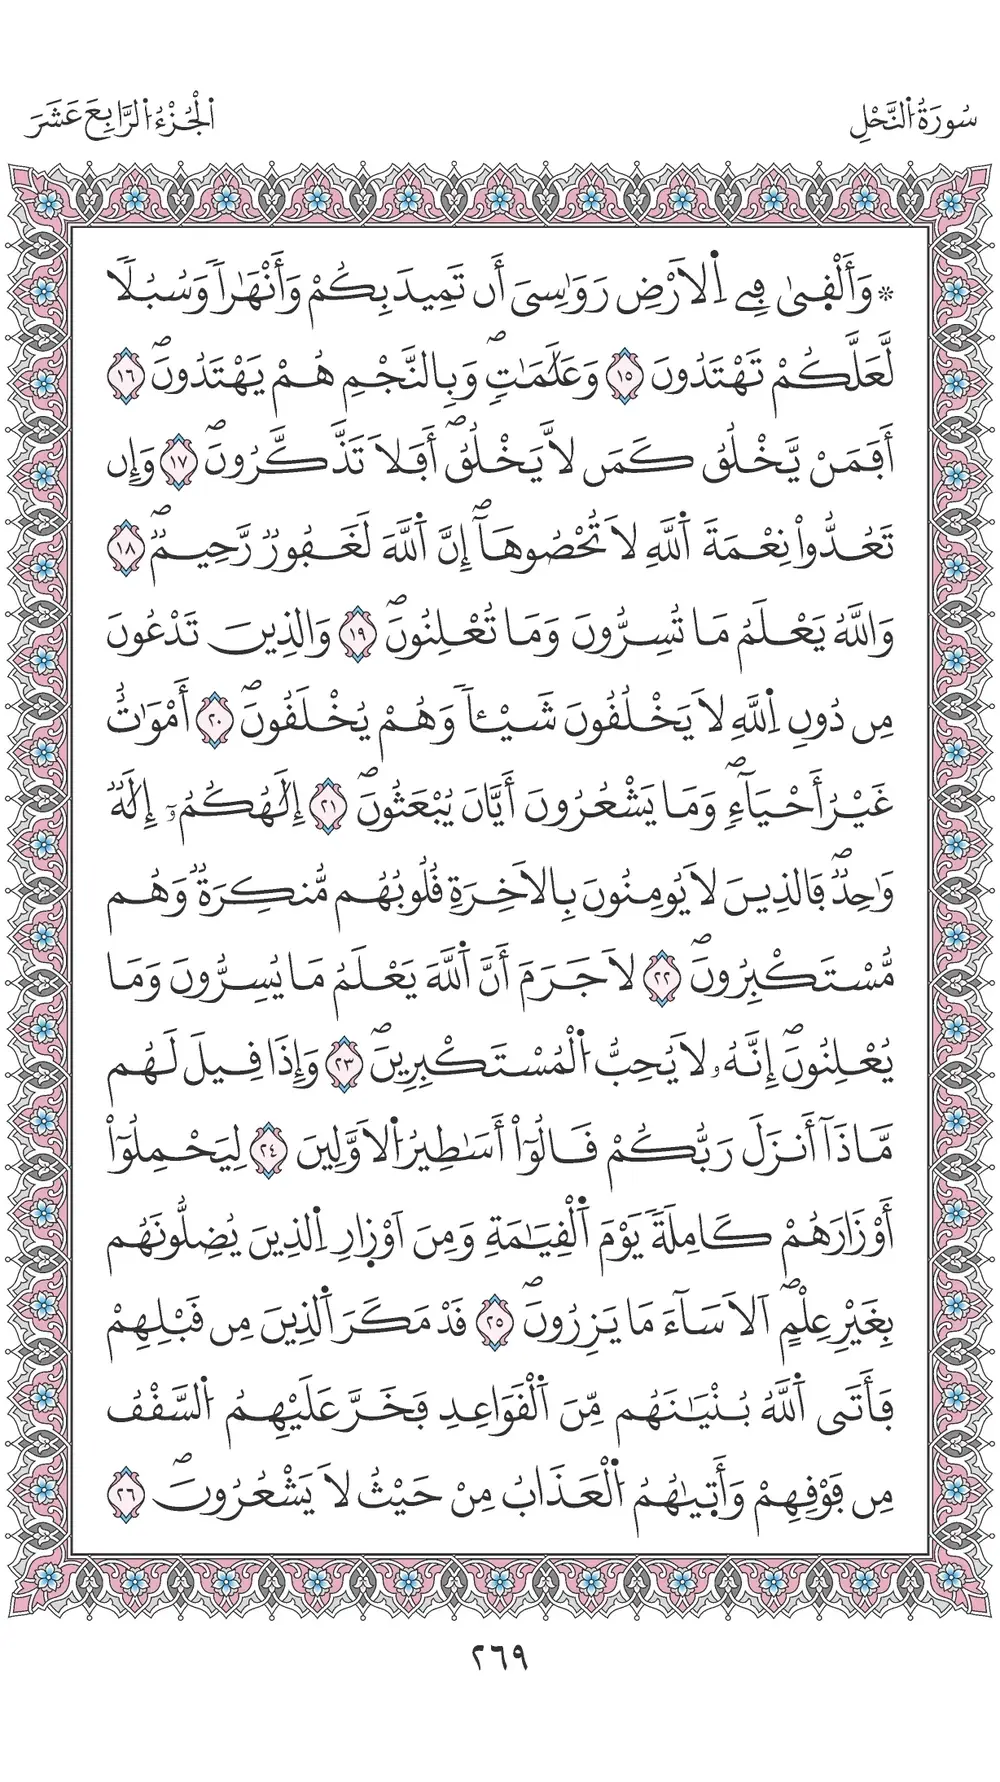 سُورَةُ اُ۬لنَّحْلِ
اَ۬لْجُزْءُ اُ۬لرَّابِعَ عَشَرَ
۞ وَأَلْق۪ىٰ فِے اِ۬لَارْضِ رَوَٰسِىَ أَن تَمِيدَ بِكُمْ وَأَنْهَٰراٗ وَسُبُلاٗ
لَّعَلَّكُمْ تَهْتَدُونَۖ ١٥ وَعَلَٰمَٰتٖۖ وَبِالنَّجْمِ هُمْ يَهْتَدُونَۖ ١٦
أَفَمَنْ يَّخْلُقُ كَمَن لَّا يَخْلُقُۖ أَفَلَا تَذَّكَّرُونَۖ ١٧ وَإِن
تَعُدُّواْ نِعْمَةَ اَ۬للَّهِ لَا تُحْصُوهَآۖ إِنَّ اَ۬للَّهَ لَغَفُورٞ رَّحِيمٞۖ ١٨
وَاللَّهُ يَعْلَمُ مَا تُسِرُّونَ وَمَا تُعْلِنُونَۖ ١٩ وَالذِينَ تَدْعُونَ
مِن دُونِ اِ۬للَّهِ لَا يَخْلُقُونَ شَيْـٔاٗ وَهُمْ يُخْلَقُونَۖ ٢٠ أَمْوَٰتٌ
غَيْرُ أَحْيَآءٖۖ وَمَا يَشْعُرُونَ أَيَّانَ يُبْعَثُونَۖ ٢١ إِلَٰهُكُمُۥٓ إِلَٰهٞ
وَٰحِدٞۖ فَالذِينَ لَا يُومِنُونَ بِالَاخِرَةِ قُلُوبُهُم مُّنكِرَةٞ وَهُم
مُّسْتَكْبِرُونَۖ ٢٢ لَا جَرَمَ أَنَّ اَ۬للَّهَ يَعْلَمُ مَا يُسِرُّونَ وَمَا
يُعْلِنُونَۖ إِنَّهُۥ لَا يُحِبُّ اُ۬لْمُسْتَكْبِرِينَۖ ٢٣ وَإِذَا قِيلَ لَهُم
مَّاذَآ أَنزَلَ رَبُّكُمْ قَالُوٓاْ أَسَٰطِيرُ اُ۬لَاوَّلِينَ ٢٤ لِيَحْمِلُوٓاْ
أَوْزَارَهُمْ كَامِلَةٗ يَوْمَ اَ۬لْقِيَٰمَةِ وَمِنَ اَوْزِارِ اِ۬لذِينَ يُضِلُّونَهُم
بِغَيْرِ عِلْمٍۖ اَلَا سَآءَ مَا يَزِرُونَۖ ٢٥ قَدْ مَكَرَ اَ۬لذِينَ مِن قَبْلِهِمْ
فَأَتَى اَ۬للَّهُ بُنْيَٰنَهُم مِّنَ اَ۬لْقَوَاعِدِ فَخَرَّ عَلَيْهِمُ اُ۬لسَّقْفُ
مِن فَوْقِهِمْ وَأَت۪ىٰهُمُ اُ۬لْعَذَابُ مِنْ حَيْثُ لَا يَشْعُرُونَۖ ٢٦
٢٦٩